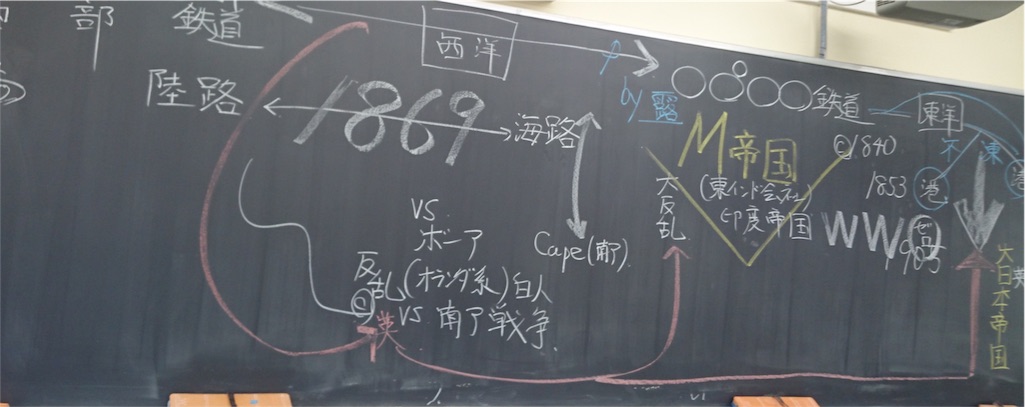 部
鉄道
西洋
陸路
1869
海路
by 露
鉄道
東洋
不
東
M帝国
(東インド会社)
印度帝国
1840
1853
港
大反乱
WW0
Cape(南ア)
vs.
ボーア
(オランダ系)白人
反乱
vs 南ア戦争
英
大日本帝国
英